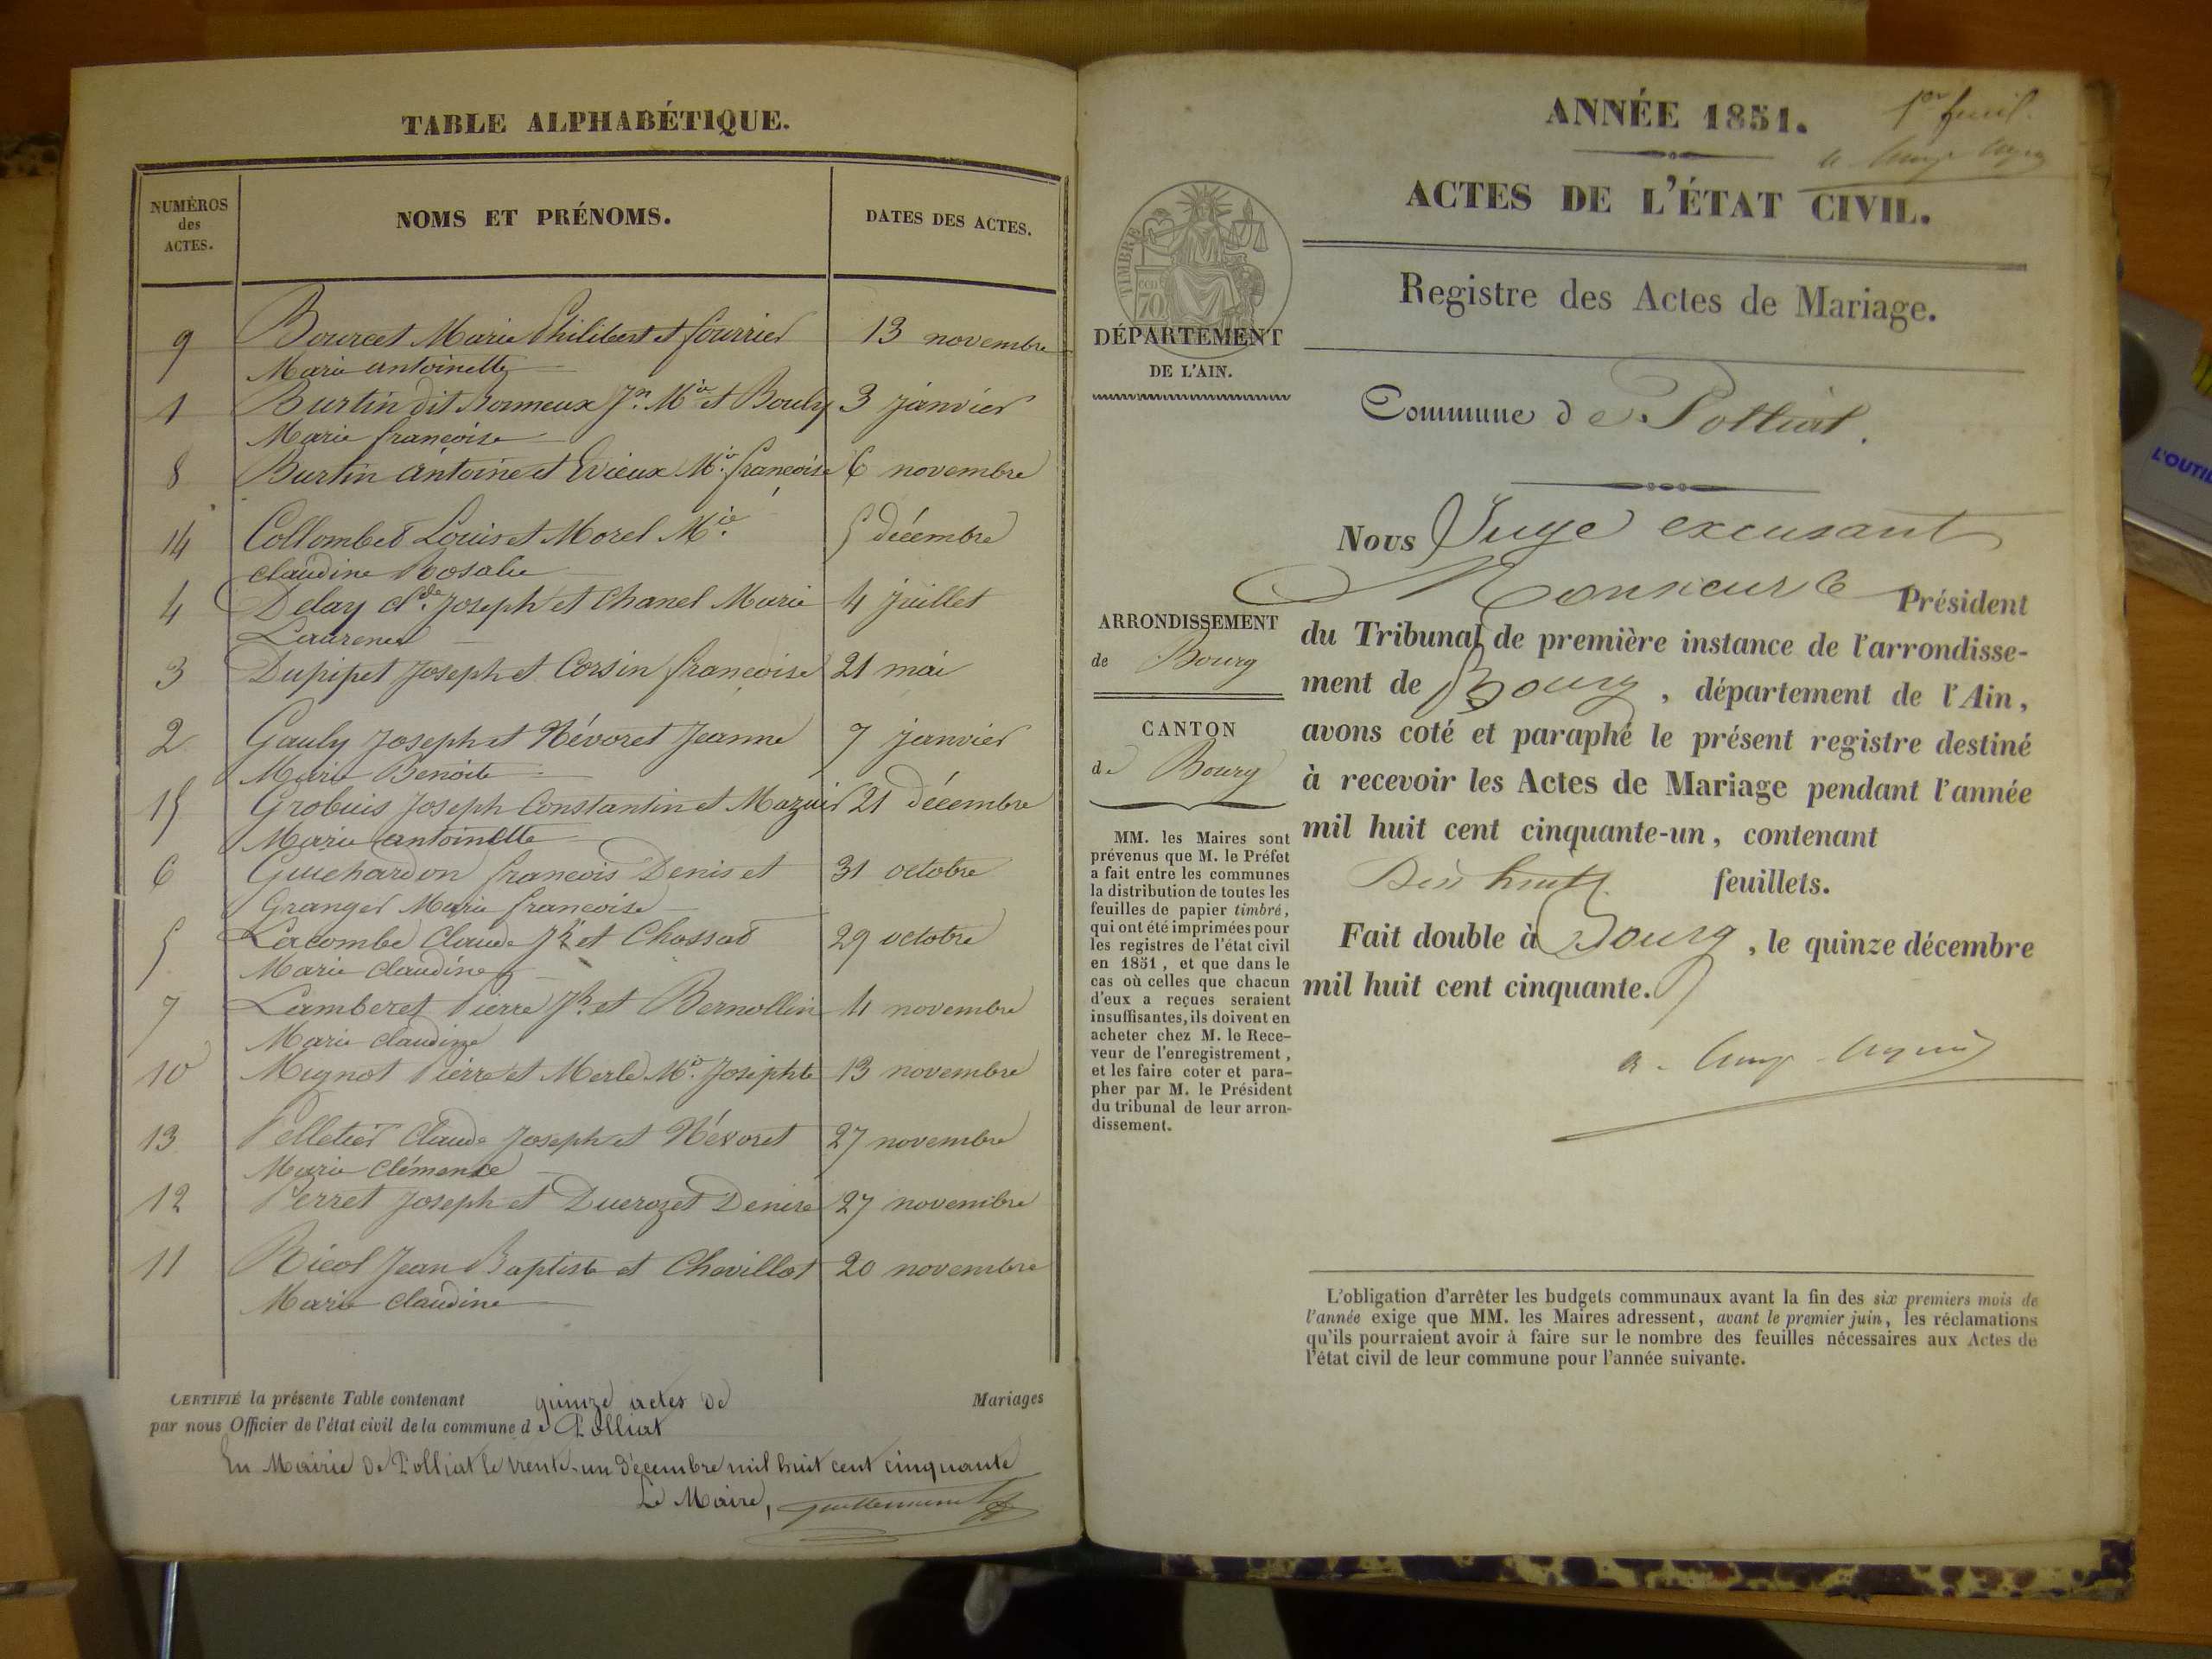 TABLE ALPHABÉTIQUE.
NUMÉROS
des
ACTES.
NOMS ET PRÉNOMS.
DATES DES ACTES.
9 Bourcet Marie Philibert et fourrier 13 novembre
Marie antoinette
1 Burtin dit Bormeux Jn. Mie et Bouly 3 janvier
Marie françoise
8 Burtin antoine et Evieux Mie. françoise 6 novembre
14 Collombet Louis et Morel Mie. 5 décembre
Claudine Rosalie
4 Delay Cde. Joseph et Chanel Marie 4 juillet
Laurence
3 Dupipet Joseph et Corsin françoise 21 mai
2 Gauly Joseph et Névoret Jeanne 7 janvier
Marie Benoite
15 Grobuis Joseph Constantin et Mazuir 21 décembre
Marie antoinette
6 Guichardon françois Denis et 31 octobre
Granger Marie françoise
5 Lacombe Claude Jh et Chossat 29 octobre
Marie Claudine
7 Lamberet Pierre Jh. et Bernollin 4 novembre
Marie Claudine
10 Mignot Pierre et Merle Mie. Josephte 13 novembre
13 Pelletier Claude Joseph et Névoret 27 novembre
Marie Clémence
12 Perret Joseph et Ducrozet Denise 27 novembre
11 Ricol Jean Baptiste et Chevillot 20 novembre
Marie Claudine
CERTIFIÉ la présente Table contenant quinze actes de Mariages
par nous Officier de l'état civil de la commune de Polliat
En Mairie de Polliat le trente-un décembre mil huit cent cinquante
Le Maire,
ANNÉE 1851.
1er feuil.
ACTES DE L'ÉTAT CIVIL.
Registre des Actes de Mariage.
TIMBRE
cen
70
DÉPARTEMENT
DE L'AIN.
Commune de Polliat.
Nous Juge excusant
Monsieur le Président
ARRONDISSEMENT
de Bourg
CANTON
de Bourg
du Tribunal de première instance de l'arrondisse-
ment de Bourg, département de l'Ain,
avons coté et paraphé le présent registre destiné
à recevoir les Actes de Mariage pendant l'année
mil huit cent cinquante-un, contenant
Dix huit feuillets.
Fait double à Bourg, le quinze décembre
mil huit cent cinquante.
MM. les Maires sont
prévenus que M. le Préfet
a fait entre les communes
la distribution de toutes les
feuilles de papier timbré,
qui ont été imprimées pour
les registres de l'état civil
en 1851, et que dans le
cas où celles que chacun
d'eux a reçues seraient
insuffisantes, ils doivent en
acheter chez M. le Rece-
veur de l'enregistrement,
et les faire coter et para-
pher par M. le Président
du tribunal de leur arron-
dissement.
L'obligation d'arrêter les budgets communaux avant la fin des six premiers mois de
l'année exige que MM. les Maires adressent, avant le premier juin, les réclamations
qu'ils pourraient avoir à faire sur le nombre des feuilles nécessaires aux Actes de
l'état civil de leur commune pour l'année suivante.